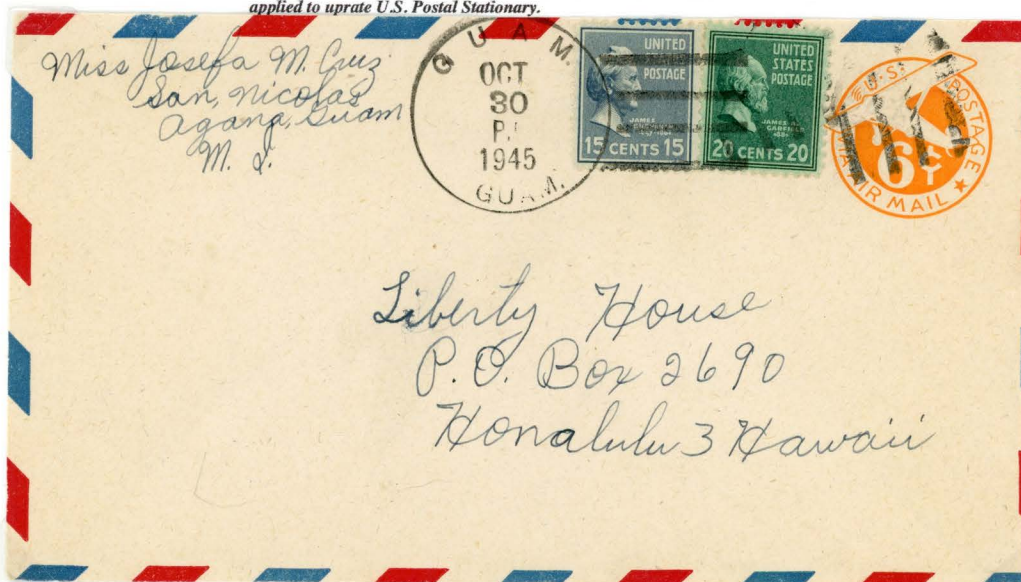 applied to uprate U.S. Postal Stationary.
Miss Josefa M. Cruz
San, Nicolas
Agana, Guam
M. I.
GUAM.
OCT
30
1945
GUAM.
UNITED
POSTAGE
JAMES
15 CENTS 15
UNITED
STATES
POSTAGE
JAMES A.
GARFIELD
20 CENTS 20
U.S. POSTAGE
6¢
VIA AIR MAIL
Liberty House
P.O. Box 2690
Honalulu 3 Hawaii